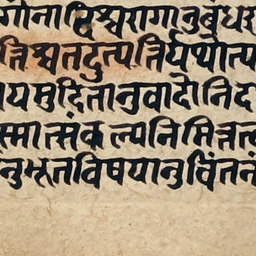 गोनाद्विश्वरागानुबंधर
त्तिश्चतदुत्पत्तिर्यथोत्प
यमुदितानुवादोनिद
स्मात्संकल्पनिमित्तत्व
नुभूतविषयानुचिंतनं